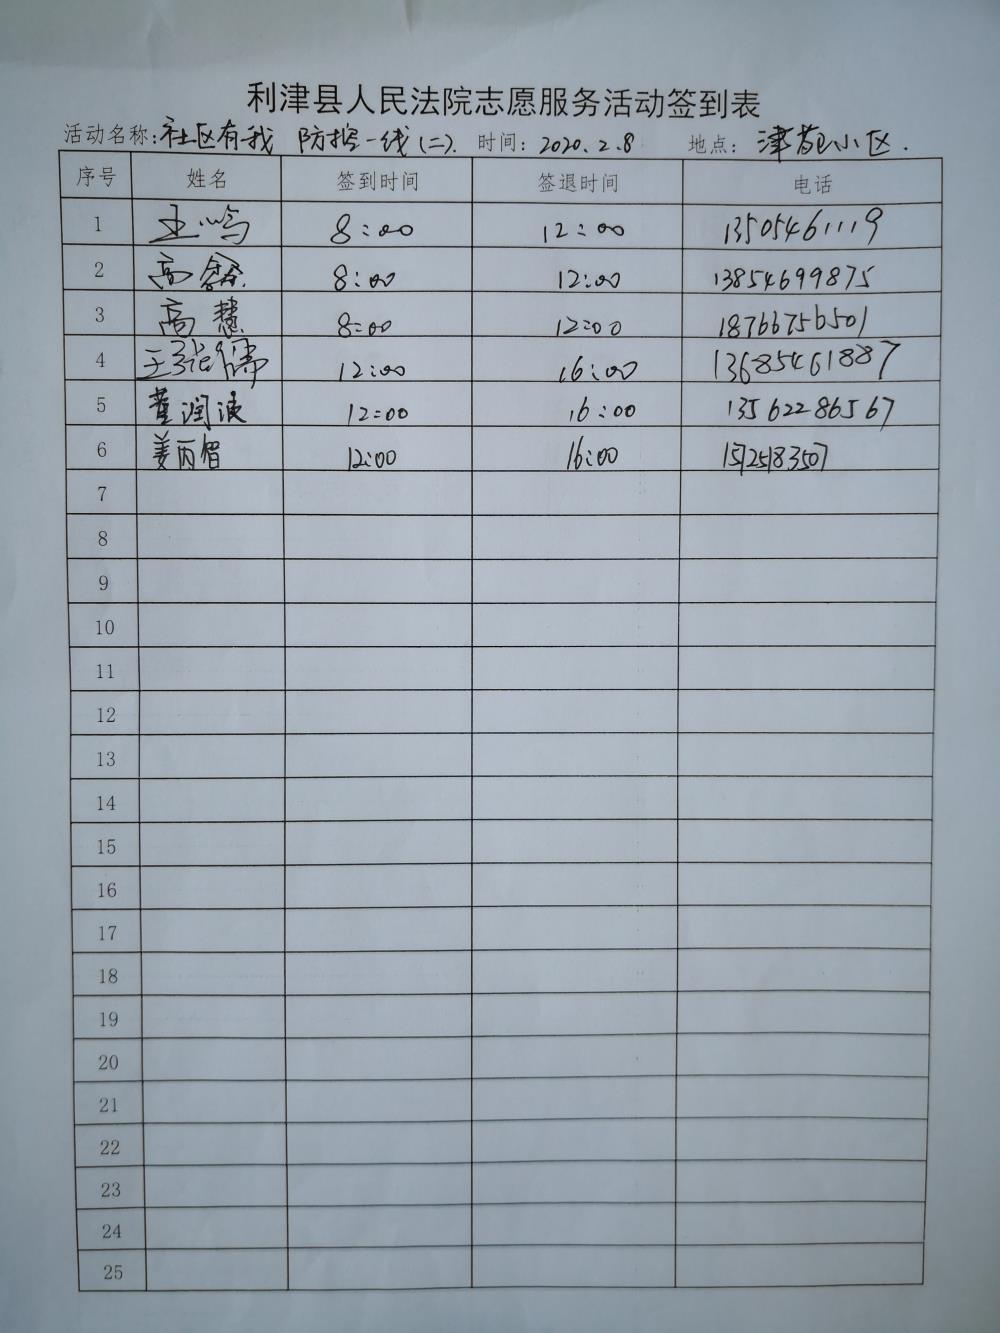 利津县人民法院志愿服务活动签到表
活动名称:社区有我 防控一线(二). 时间: 2020.2.8 地点: 津苑小区.
序号 姓名 签到时间 签退时间 电话
1 王鸣 8:00 12:00 13505461119
2 高鑫 8:00 12:00 13854699875
3 高慧 8:00 12:00 18766756501
4 王张伟 12:00 16:00 13685461887
5 董润波 12:00 16:00 13562286567
6 姜丙眉 12:00 16:00
7
8
9
10
11
12
13
14
15
16
17
18
19
20
21
22
23
24
25